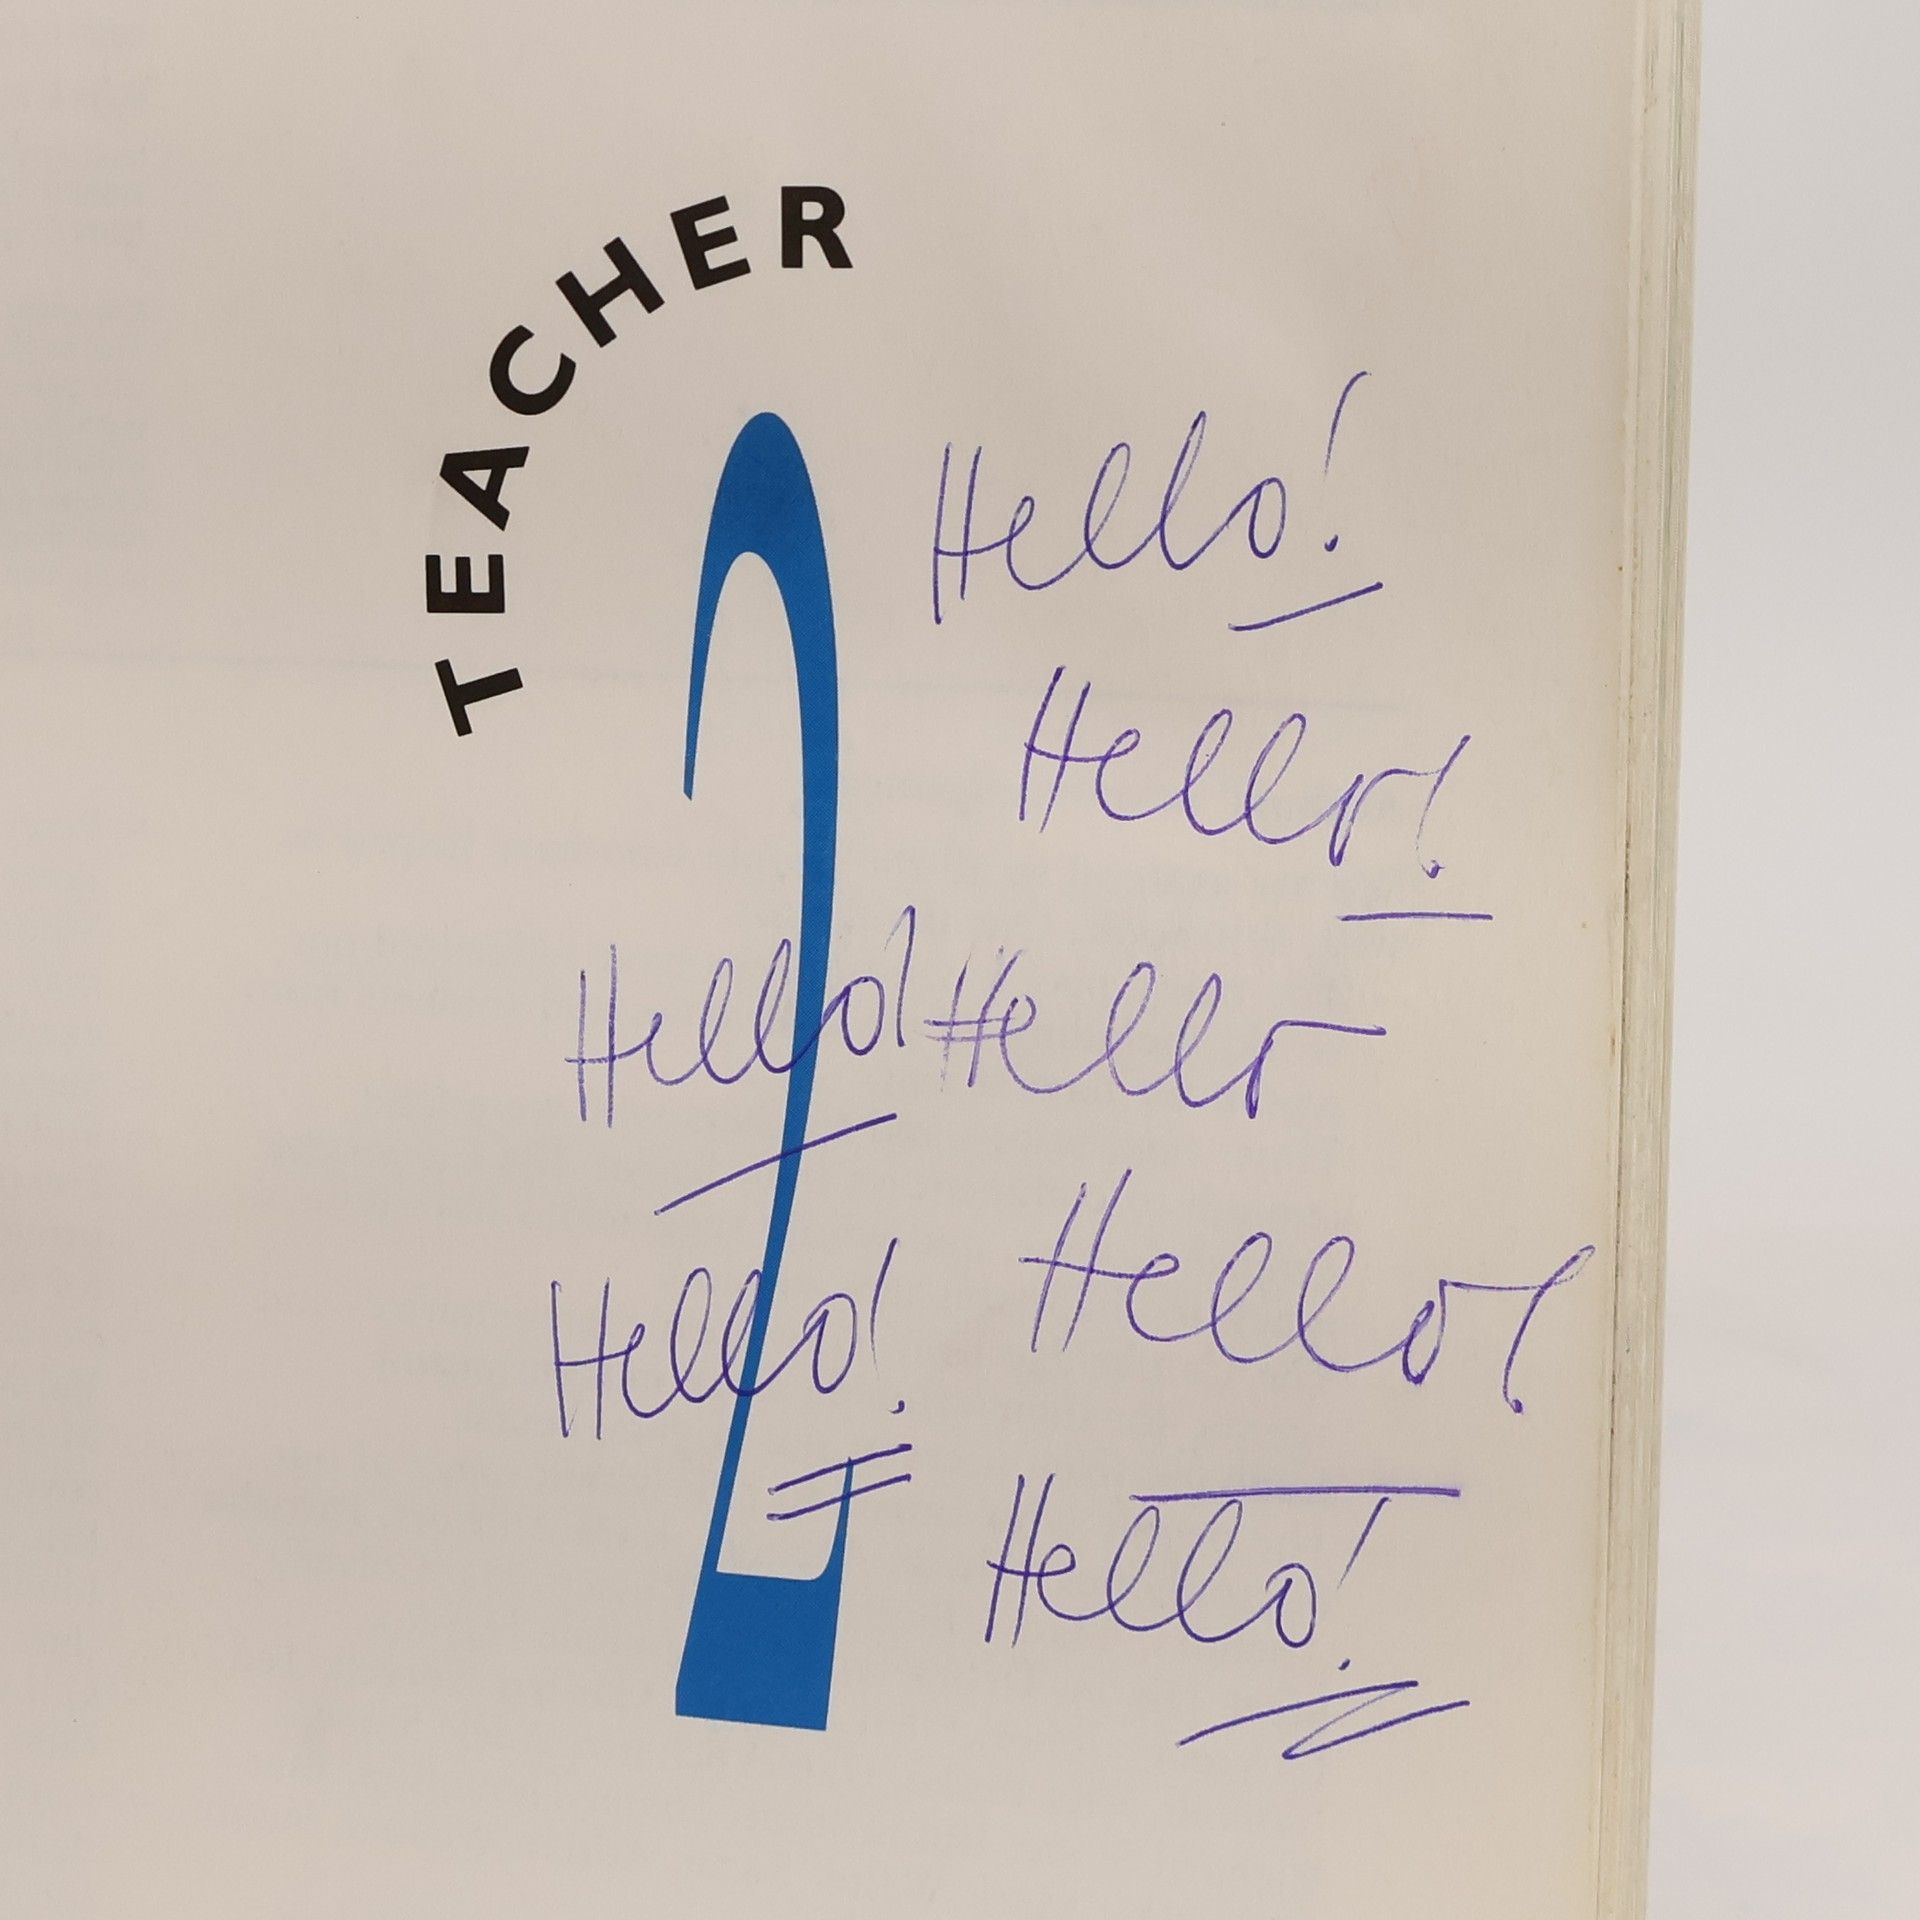 TEACHER
2
Hello!
Hello!
Hello! Hello
Hello! Hello!
Hello!